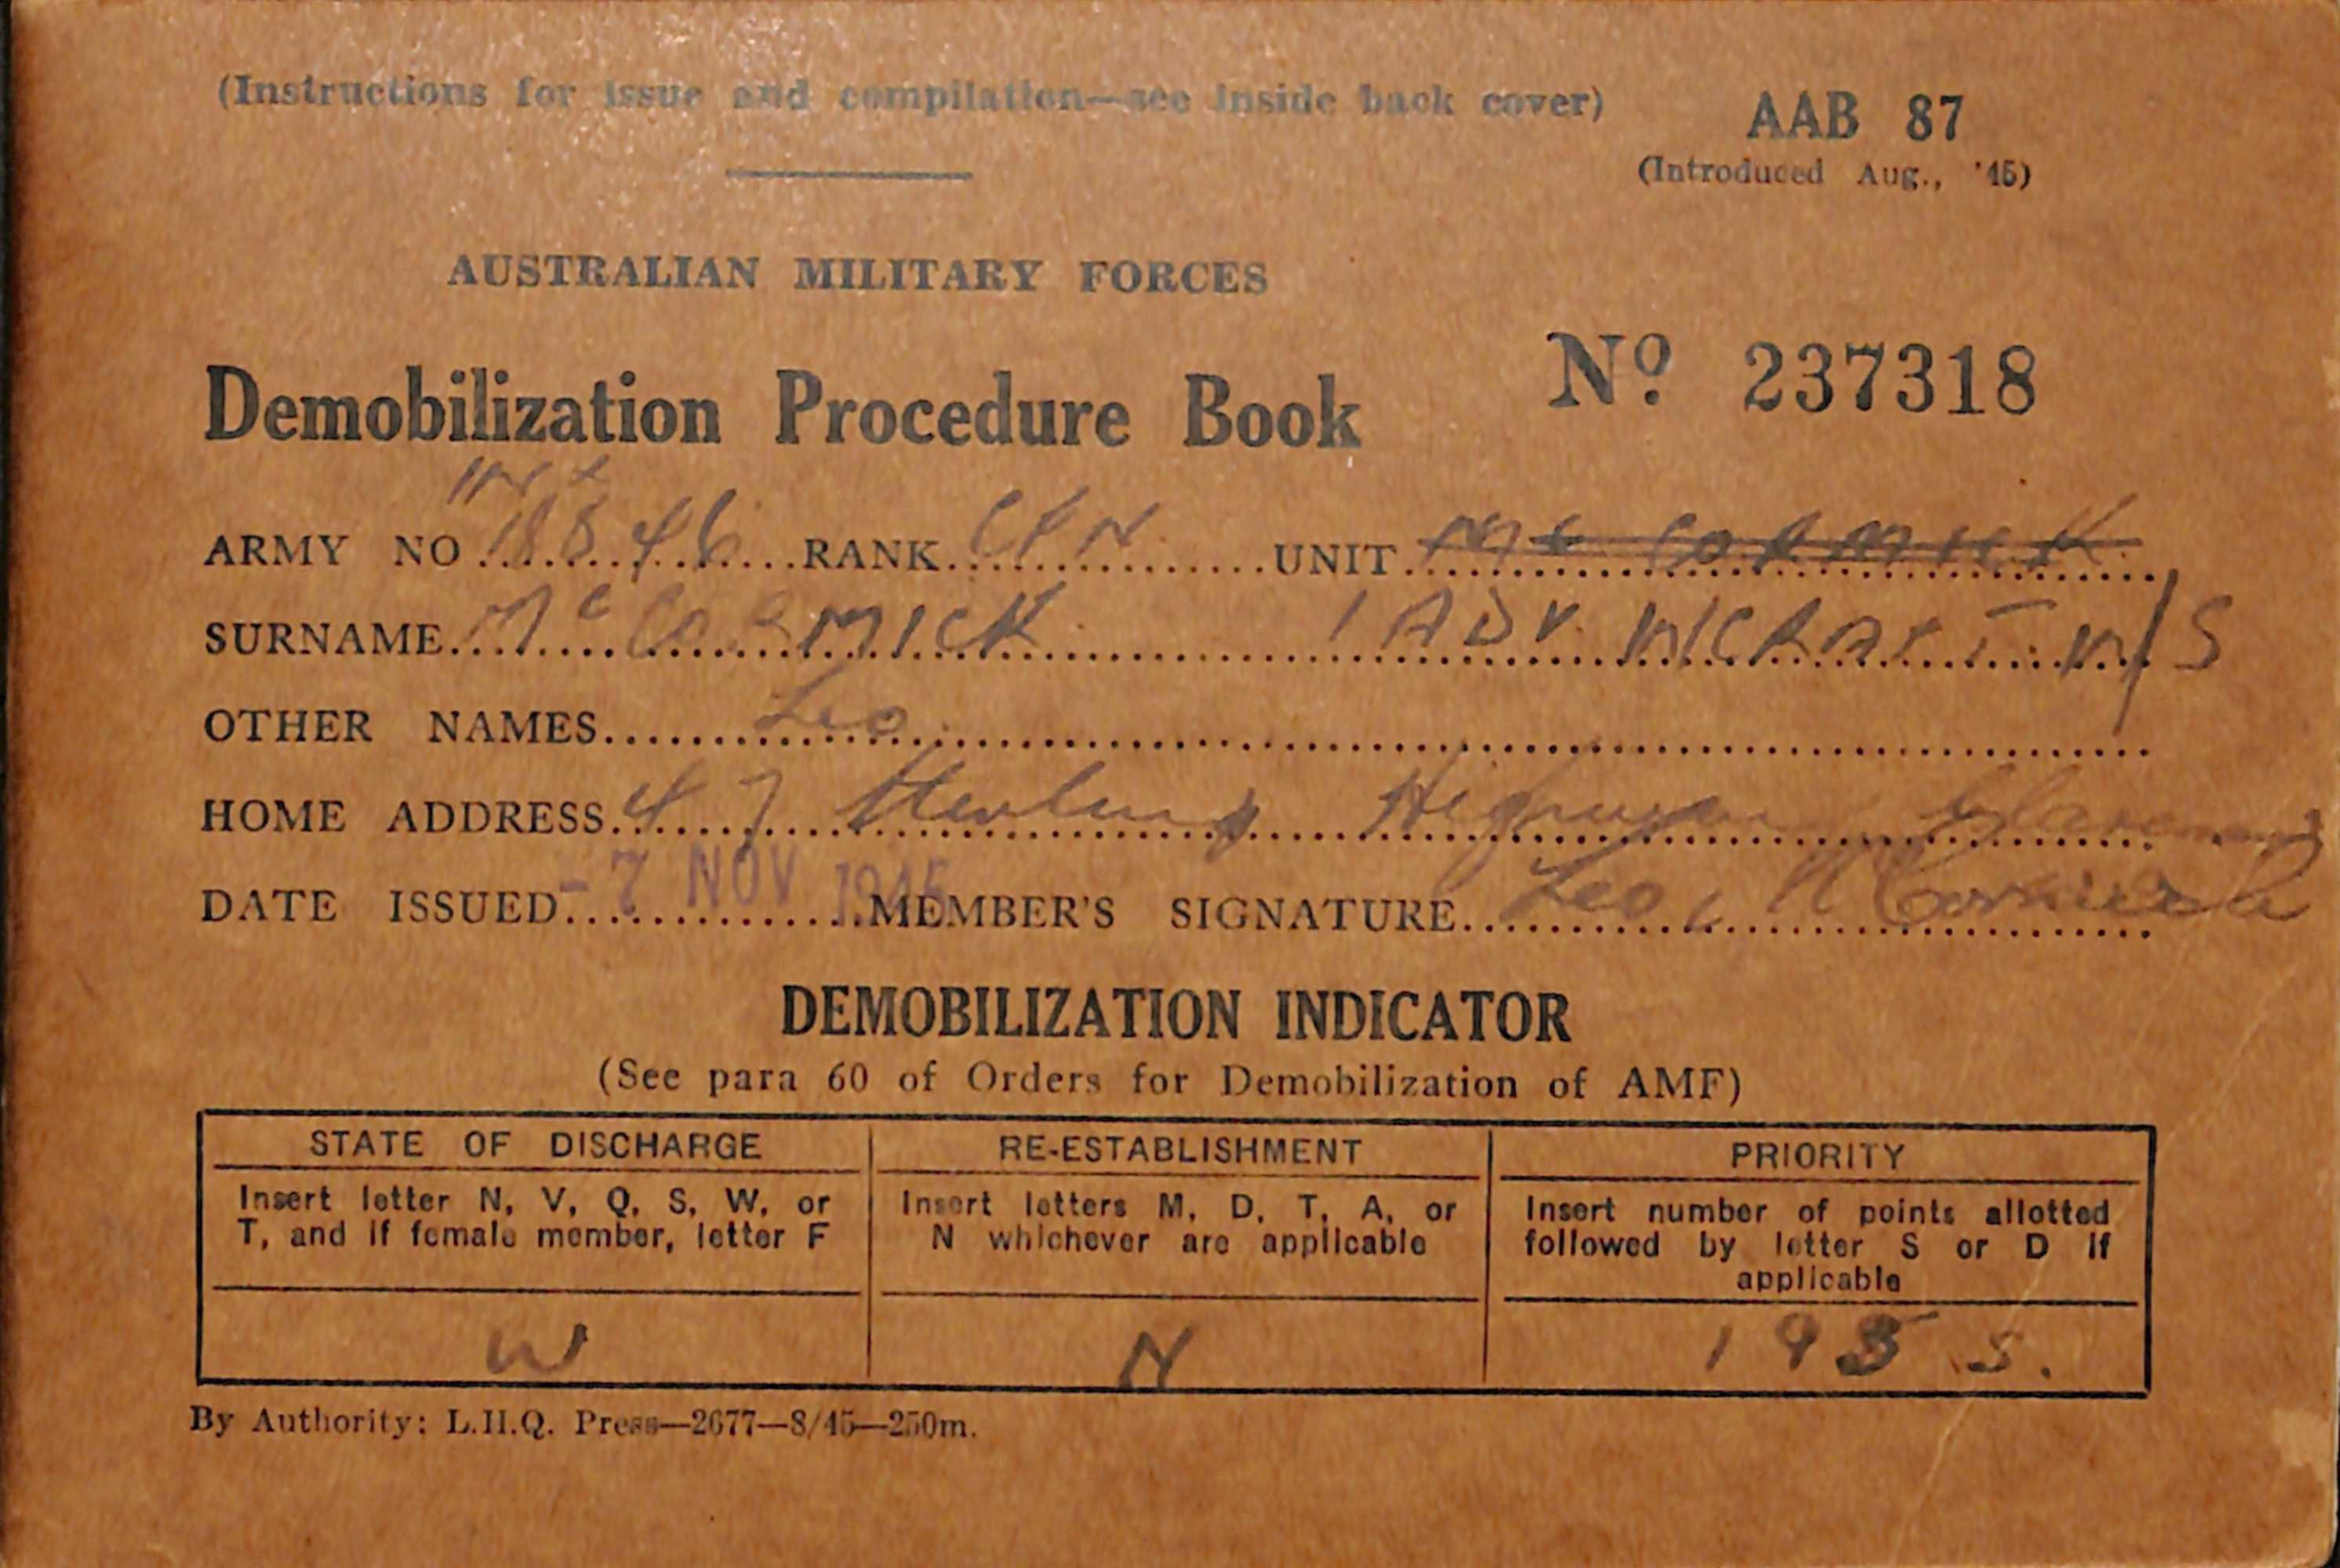 (Instructions for issue and compilation—see inside back cover)
AAB 87
(Introduced Aug., '45)
AUSTRALIAN MILITARY FORCES
Demobilization Procedure Book
No 237318
ARMY NO 18846 RANK CPN UNIT Mc CORMICK
SURNAME McCORMICK 1 ADV W/S
OTHER NAMES Leo
HOME ADDRESS 47 Highway
DATE ISSUED -7 NOV 1945 MEMBER'S SIGNATURE Leo McCormick
DEMOBILIZATION INDICATOR
(See para 60 of Orders for Demobilization of AMF)
STATE OF DISCHARGE
Insert letter N, V, Q, S, W, or
T, and if female member, letter F
W
RE-ESTABLISHMENT
Insert letters M, D, T, A, or
N whichever are applicable
N
PRIORITY
Insert number of points allotted
followed by letter S or D if
applicable
195 S.
By Authority: L.H.Q. Press—2677—8/45—250m.